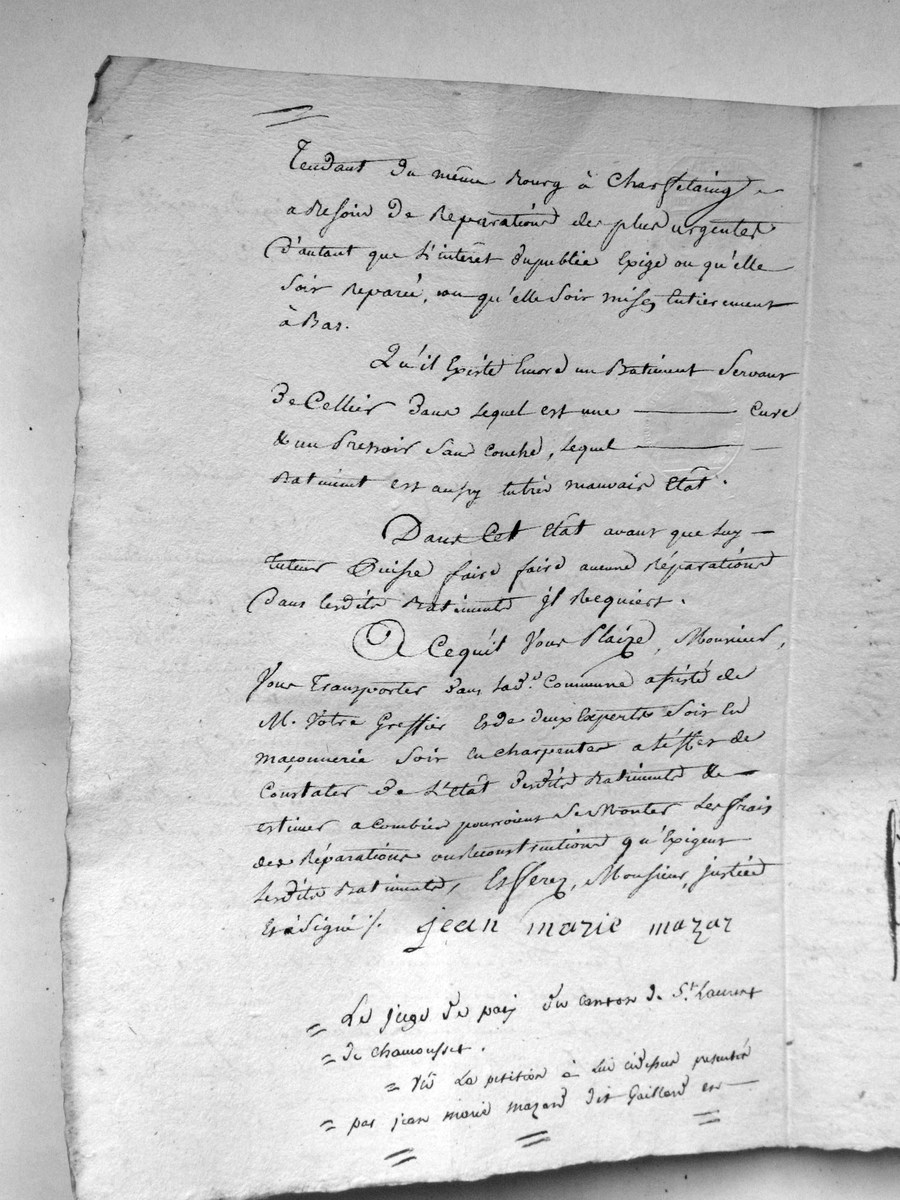 Tendant du même Bourg à
a Besoin De Reparations des plus urgentes
D'autant que L'interet Dupublic Exige ou qu'elle
Soit Reparée, ou qu'elle Soit mise Entierement
à Bas.
Qu'il Existe Encore un Batiment Servant
De Cellier Dans Lequel est une ——— Cuve
& un Pressoir Sans Couche, Lequel ———
Batiment est aussy En très mauvais Etat.
Dans Cet Etat avant que Luy —
Tuteur Puisse faire faire aucune Réparations
Dans Lesdits Batiments il Requiert.
A Cequ'il Vous Plaize, Monsieur,
Vous Transporter Dans Lad.e Commune assisté de
M. Votre Greffier Et de deux Experts Soit En
maçonnerie Soit En Charpente a L'effet de
Constater De L'Etat Desdits Batiments de —
estimer a Combien pourroient Se Monter Les frais
des Réparations ou Reconstructions qu'Exigent
Lesdits Batiments, Et Ferez, Monsieur, Justice
Et à Signé /. jean marie mazar
= Le juge De paix Du Canton de St. Laurent
= De Chamousset.
= Vû La petition à Lui cidessus presentée
= par jean marie mazard dit Gaillard en —